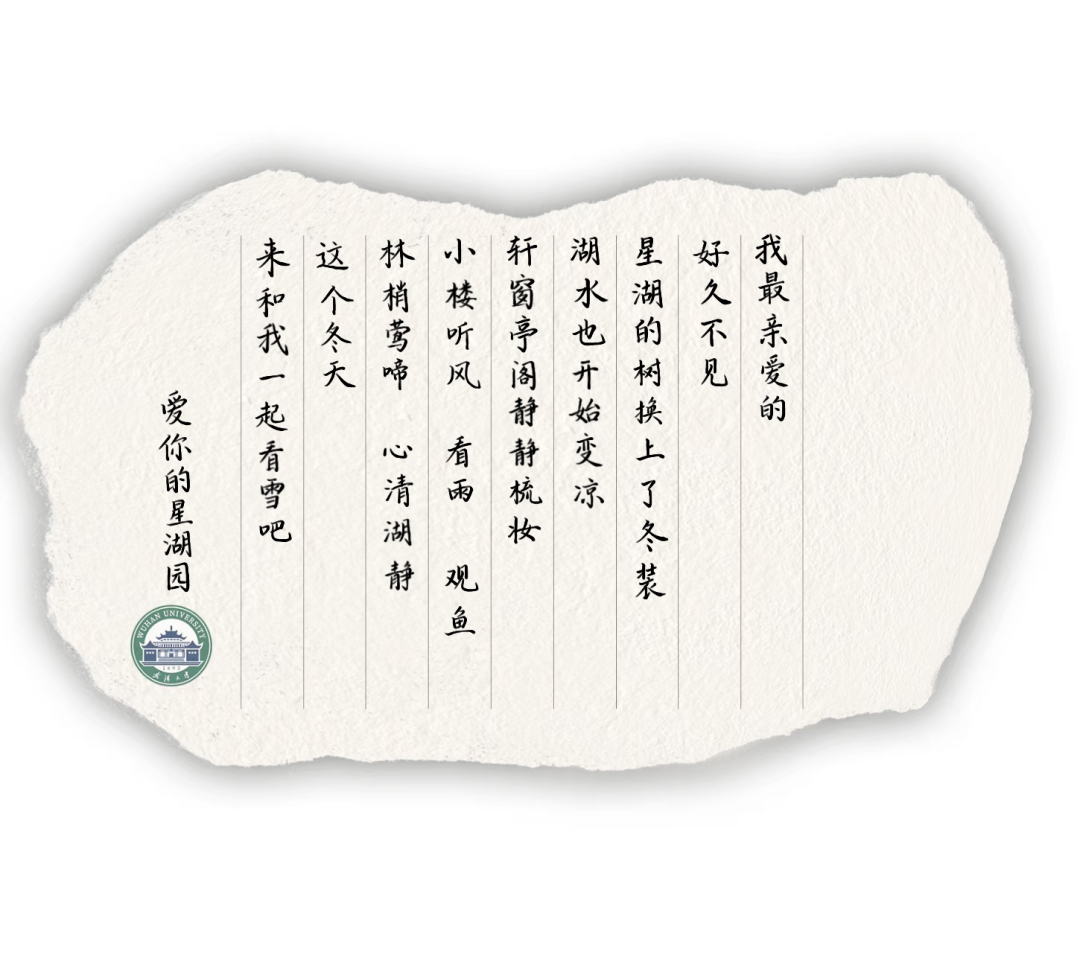 我最亲爱的
好久不见
星湖的树换上了冬装
湖水也开始变凉
轩窗亭阁静静梳妆
小楼听风 看雨 观鱼
林梢莺啼 心清湖静
这个冬天
来和我一起看雪吧
爱你的星湖园
WUHAN UNIVERSITY
1893
武汉大学